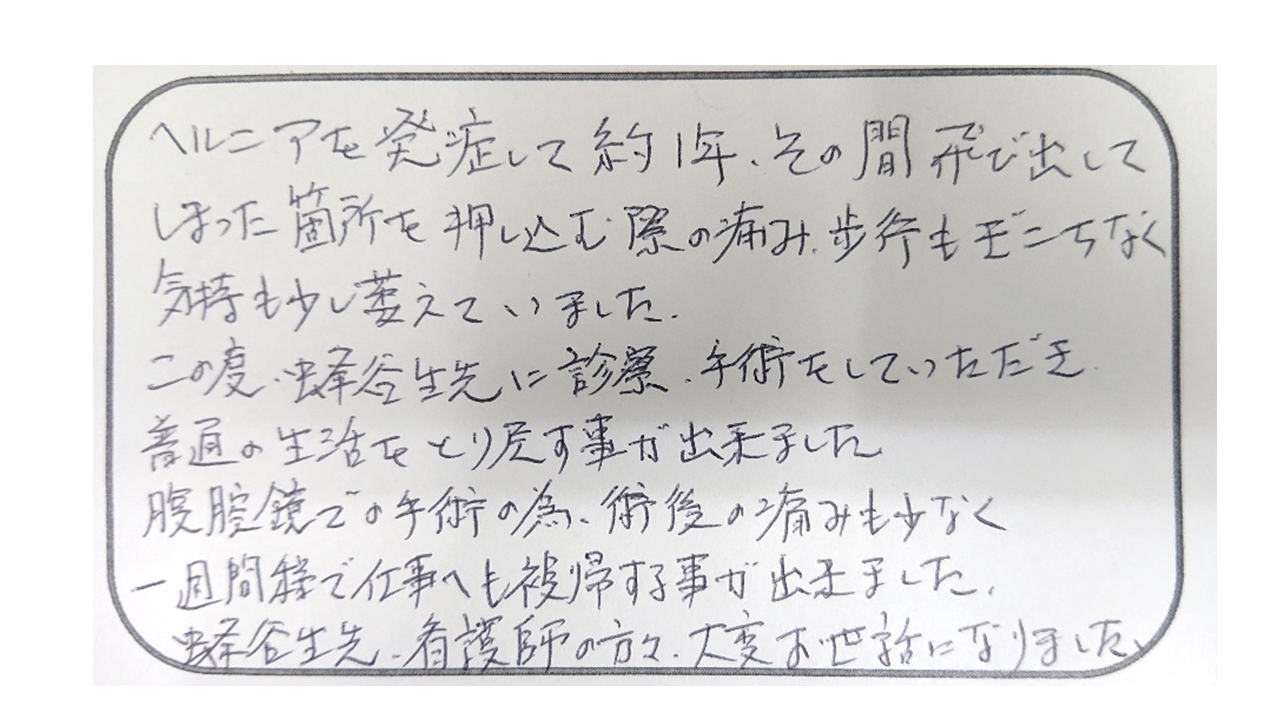 ヘルニアを発症して約1年、その間飛び出して
しまった箇所を押し込む際の痛み、歩行もぎこちなく
気持も少し萎えていました。
この度、蜂谷生先に診察、手術をしていただき、
普通の生活をとり戻す事が出来ました
腹腔鏡での手術の為、術後の痛みも少なく
一週間程で仕事へも復帰する事が出来ました。
蜂谷生先、看護師の方々、大変お世話になりました。